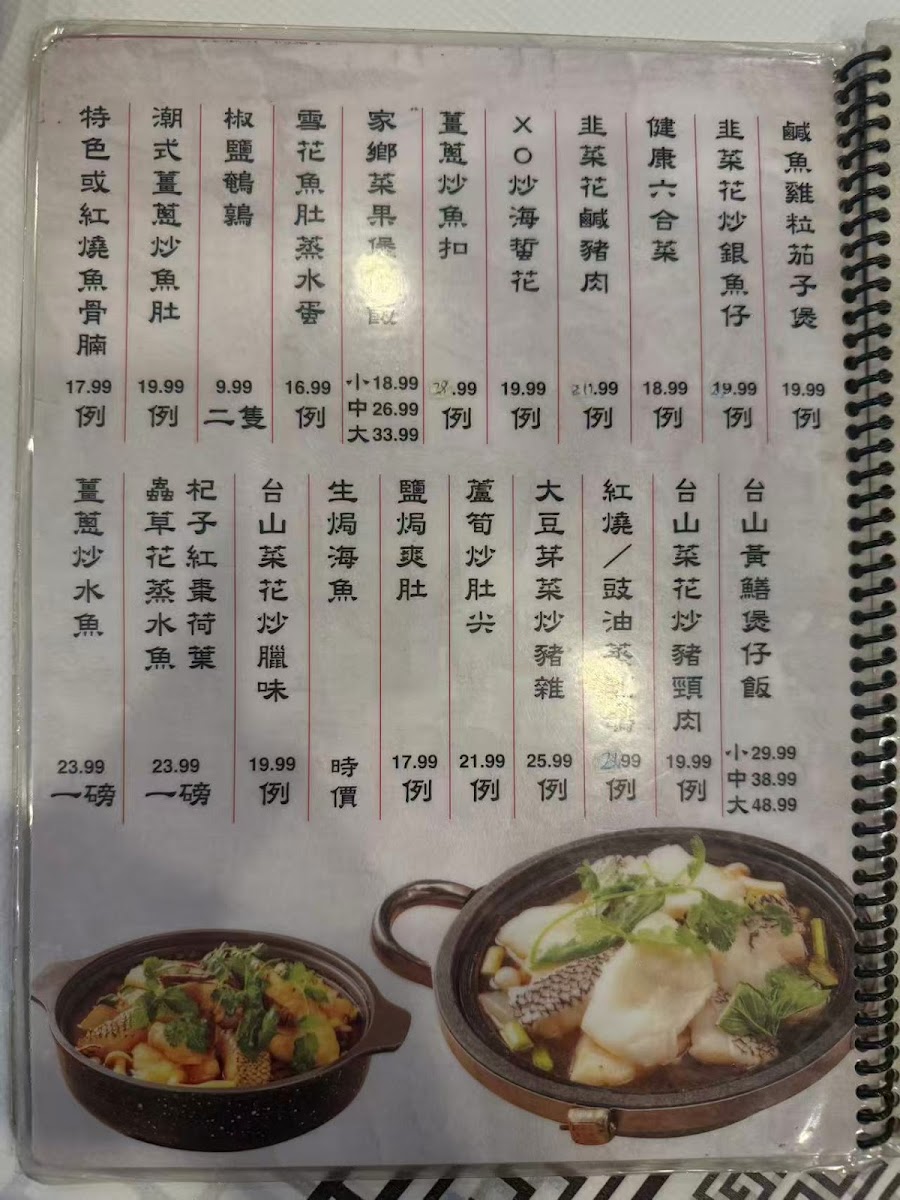 鹹魚雞粒茄子煲
19.99
例
韭菜花炒銀魚仔
19.99
例
健康六合菜
18.99
例
韭菜花鹹豬肉
.99
例
XO炒海蜇花
19.99
例
薑蔥炒魚扣
.99
例
家鄉菜果煲仔飯
小 18.99
中 26.99
大 33.99
雪花魚肚蒸水蛋
16.99
例
椒鹽鵪鶉
9.99
二隻
潮式薑蔥炒魚肚
19.99
例
特色或紅燒魚骨腩
17.99
例
台山黃鱔煲仔飯
小 29.99
中 38.99
大 48.99
台山菜花炒豬頸肉
19.99
例
紅燒/豉油蒸
.99
例
大豆芽菜炒豬雜
25.99
例
蘆筍炒肚尖
21.99
例
鹽焗爽肚
17.99
例
生焗海魚
時價
台山菜花炒臘味
19.99
例
杞子紅棗荷葉
蟲草花蒸水魚
23.99
一磅
薑蔥炒水魚
23.99
一磅